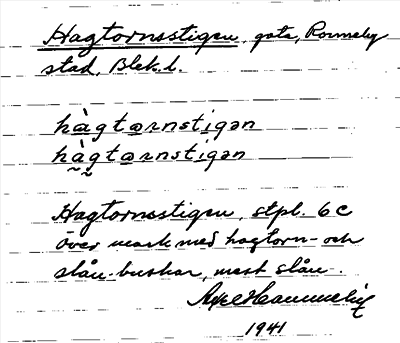 Hagtornsstigen, gata, Ronneby
stad, Blek. l.
hàgtɷrnstigən
hàgtɷrnstigən
Hagtornsstigen, stpl. 6c
över mark med hagtorn- och
slån-buskar, mest slån-.
Axel
1941